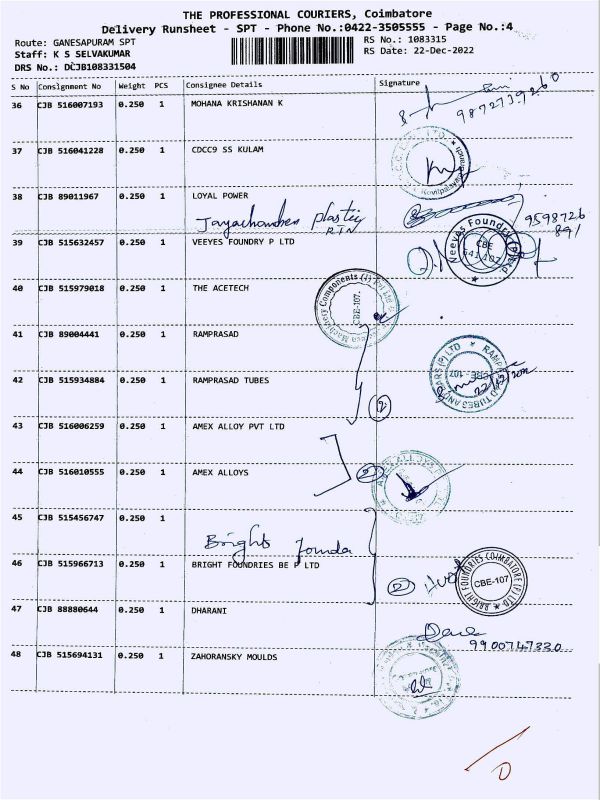 THE PROFESSIONAL COURIERS, Coimbatore
Delivery Runsheet - SPT - Phone No.:0422-3505555 - Page No.:4
Route: GANESAPURAM SPT RS No.: 1083315
Staff: K S SELVAKUMAR RS Date: 22-Dec-2022
DRS No.: DLJB108331504
S No Consignment No Weight PCS Consignee Details Signature
36 CJB 516007193 0.250 1 MOHANA KRISHANAN K
9872739260
37 CJB 516041228 0.250 1 CDCC9 SS KULAM
38 CJB 89011967 0.250 1 LOYAL POWER
Jayachandren plastic
RTN
9598726
891
39 CJB 515632457 0.250 1 VEEYES FOUNDRY P LTD
Veeyes Foundry (P) Ltd
CBE
641 107
40 CJB 515979018 0.250 1 THE ACETECH
Machinery Components (I) Pvt Ltd
CBE-107.
41 CJB 89004441 0.250 1 RAMPRASAD
42 CJB 515934884 0.250 1 RAMPRASAD TUBES
RAMPRASAD TUBES AND BARS (P) LTD
CBE - 107
2
43 CJB 516006259 0.250 1 AMEX ALLOY PVT LTD
44 CJB 516010555 0.250 1 AMEX ALLOYS
2
45 CJB 515456747 0.250 1
Brights Founda
46 CJB 515966713 0.250 1 BRIGHT FOUNDRIES BE P LTD
2
BRIGHT FOUNDRIES COIMBATORE (P) LTD
CBE-107
47 CJB 88880644 0.250 1 DHARANI
9900747330
48 CJB 515694131 0.250 1 ZAHORANSKY MOULDS